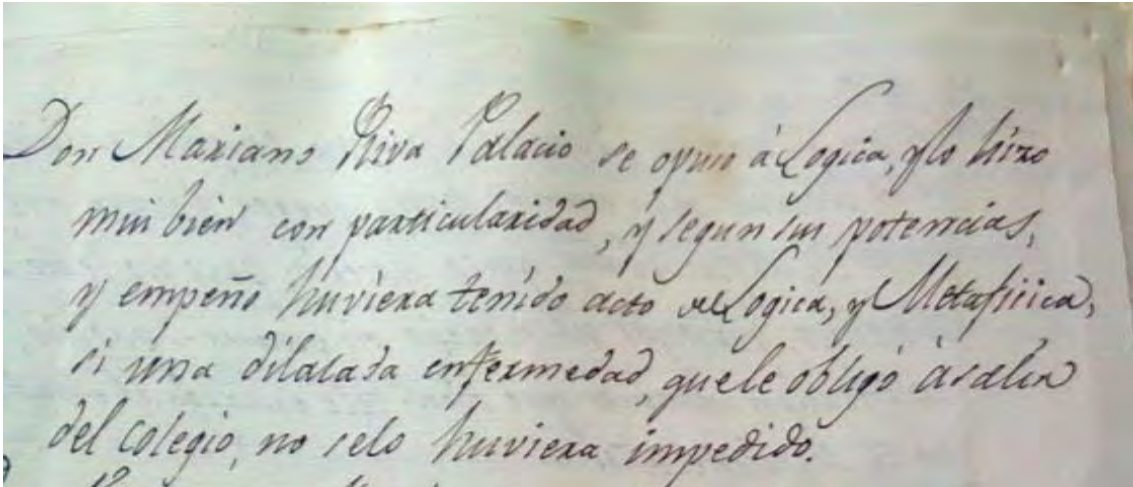 Don Mariano Riva Palacio se opuso à Logica, y lo hizo
mui bien con particularidad, y segun sus potencias,
y empeño huviera tenido acto de Logica, y Metafisica,
si una dilatada enfermedad, que le obligó à salir
del colegio, no selo huviera impedido.